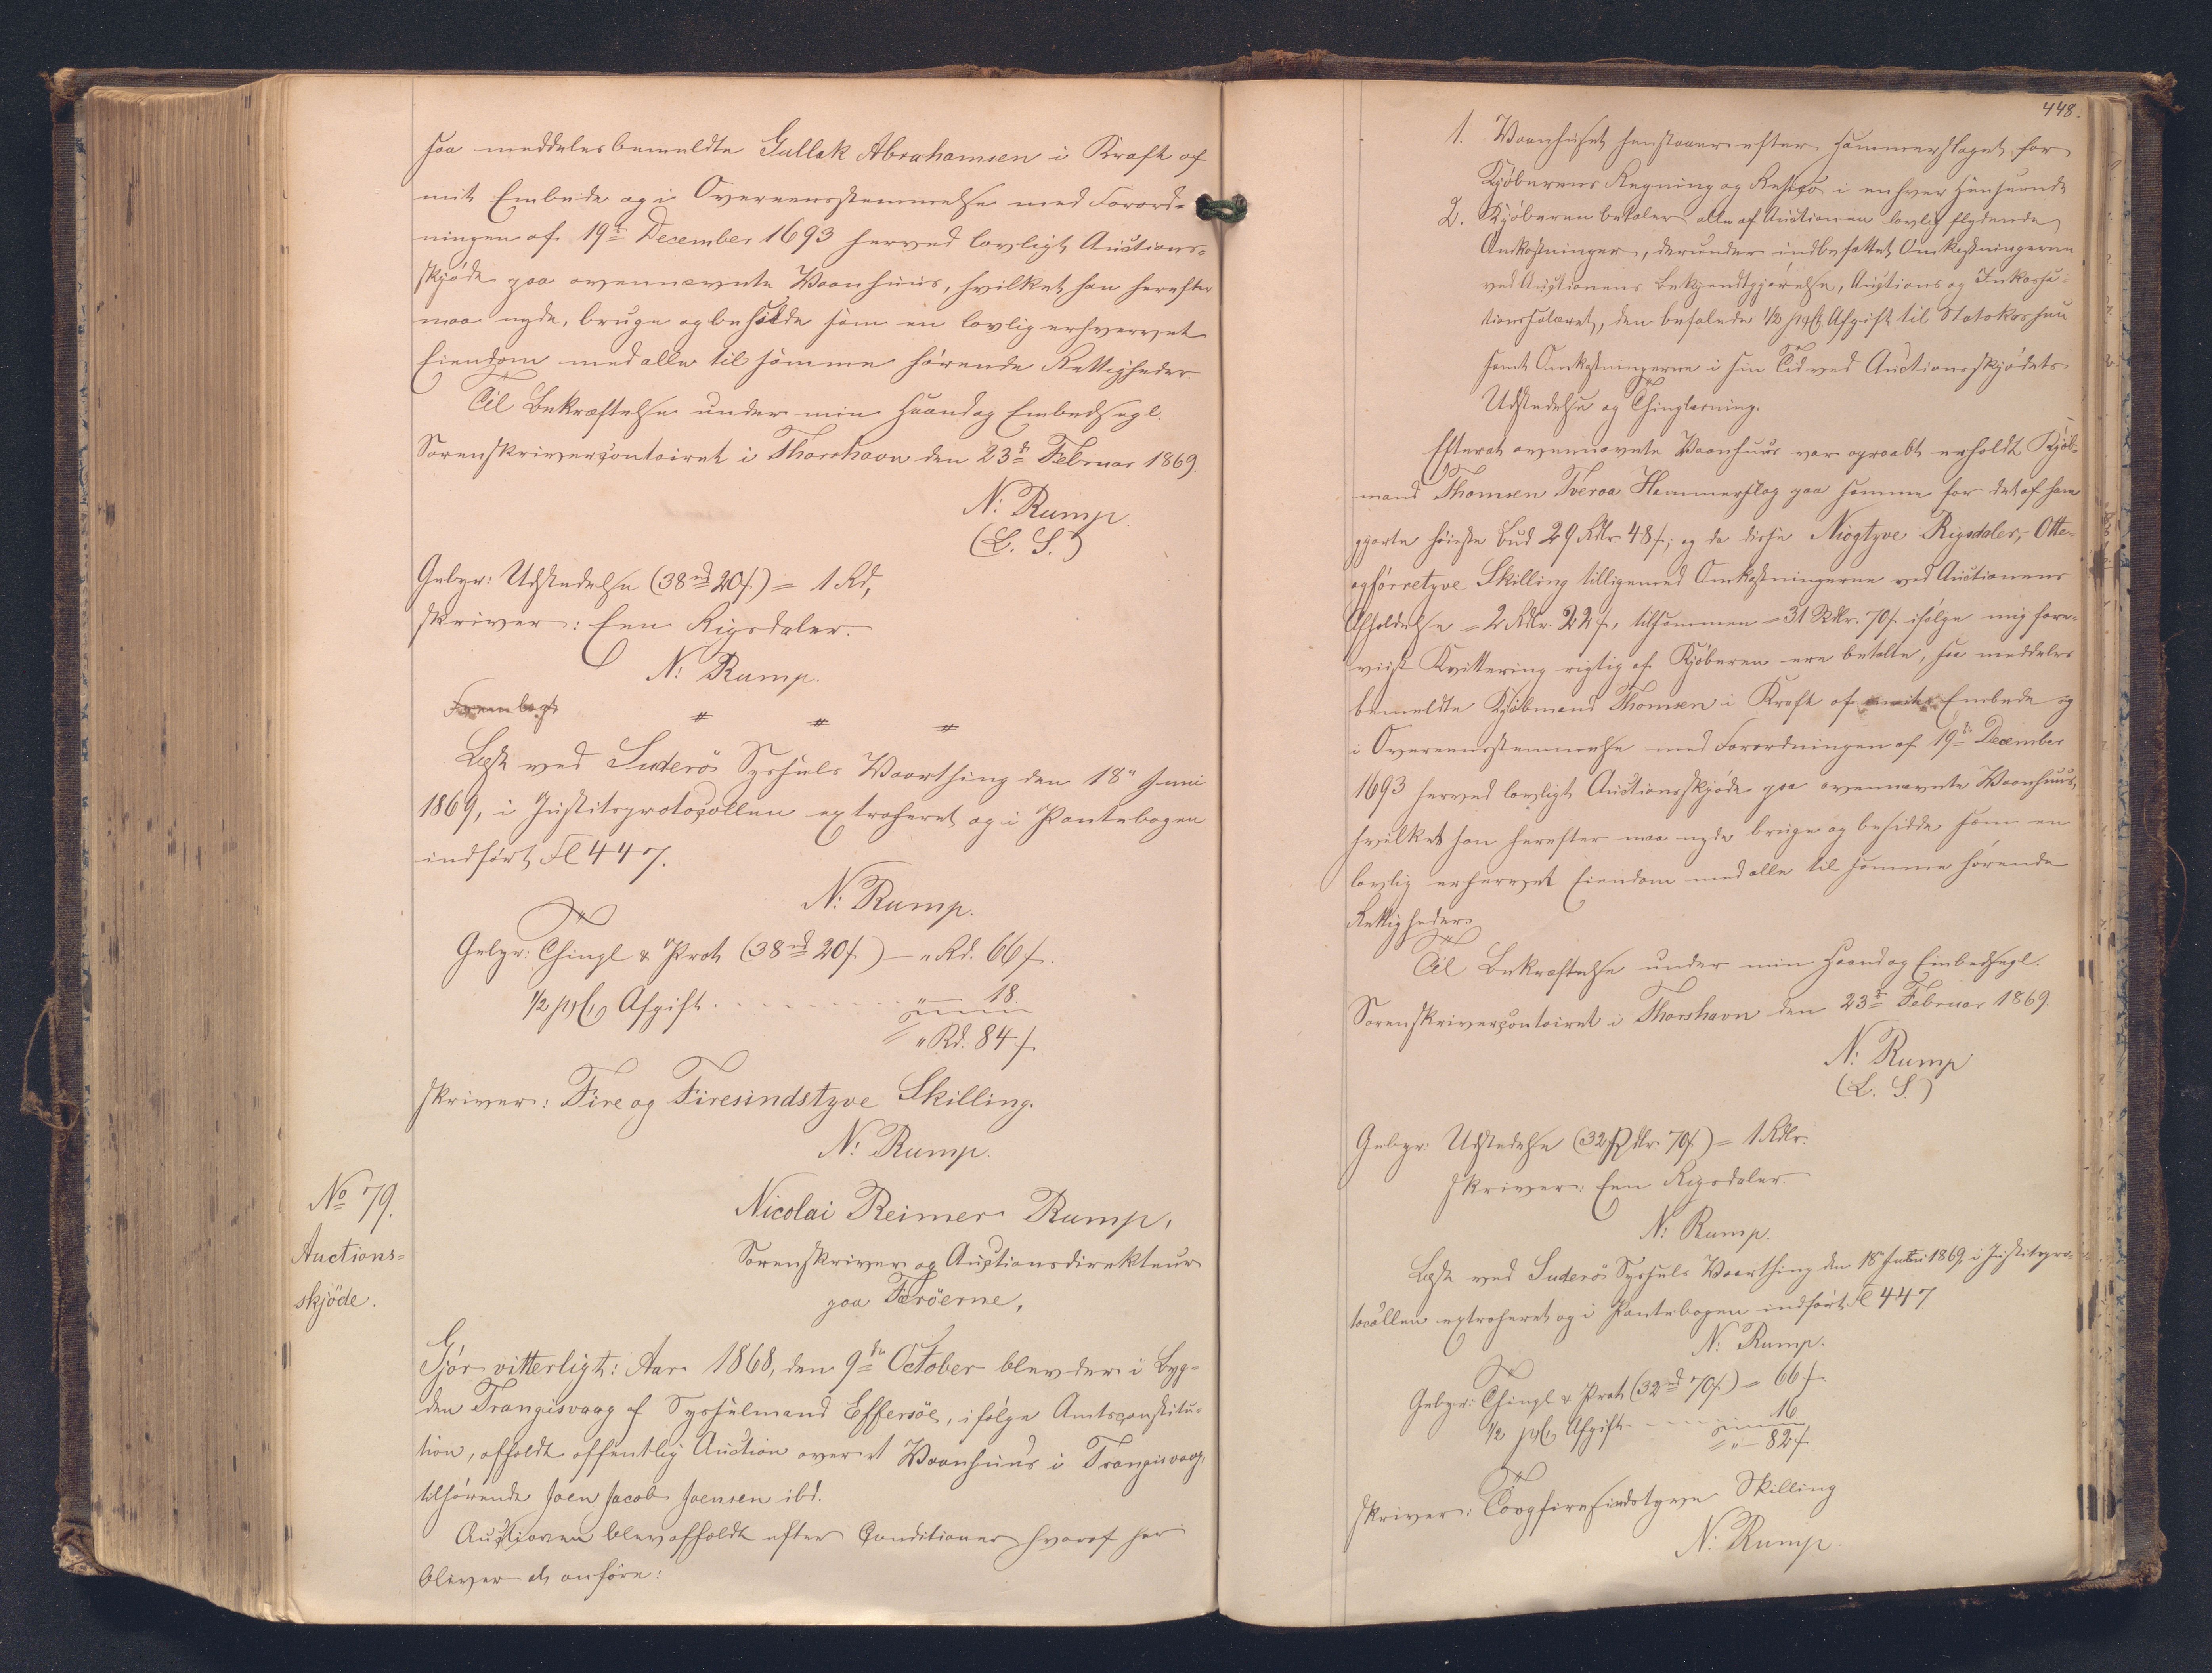 saa meddeles bemeldte Gullak Abrahamsen i Kraft af
mit Embede og i Overeensstemmelse med Forord-
ningen af 19de December 1693 herved lovligt Auctions-
skjøde paa ovennævnte Vaanhuus, hvilket han herefter
maa nyde, bruge og besidde som en lovlig erhvervet
Eiendom med alle til samme hørende Rettigheder.
Til Bekræftelse under min Haand og Embedssegl.
Sorenskrivercontoiret i Thorshavn den 23de Februar 1869.
N: Rump.
(L. S.)
Gebyr: Udstedelse (38 rd 20 s) = 1 Rd,
skriver: Een Rigsdaler.
N: Rump.
Læst ved Suderös Syssels Vaarthing den 18" Juni
1869, i Justitsprotocollen extraheret og i Pantebogen
indført Fl 447.
N: Rump.
Gebyr: Thingl & Prot (38 rd 20 s) — " Rd. 66 s.
1/2 pCt Afgift . . . . . . " — 18.
" Rd. 84 s.
skriver: Fire og Firesindstyve Skilling.
N: Rump.
No 79.
Auctions-
skjöde.
Nicolai Reimer Rump,
Sorenskriver og Auctionsdirekteur
paa Færöerne,
Gjör vitterligt: Aar 1868, den 9de October blev der i Byg-
den Trangisvaag af Sysselmand Effersöe, ifølge Amtsconstitu-
tion, afholdt offentlig Auction over et Vaanhuus i Trangisvaag,
tilhørende Joen Jacob Joensen ibd.
Auctionen blev afholdt efter Conditioner hvoraf her
bliver at anføre:
448.
1. Vaanhuset henstaaer efter Hammerslaget for
Kjøberens Regning og Risico i enhver Henseende
2. Kjøberen betaler alle af Auctionen lovlig flydende
Omkostninger, derunder indbefattet Omkostningerne
ved Auctionens Bekjendtgjørelse, Auctions og Inkassa-
tionssalairet, den befalede 1/2 pCt Afgift til Statskassen
samt Omkostningerne i sin Tid ved Auctionsskjødets
Udstedelse og Thinglæsning.
Efterat ovennævnte Vaanhuus var opraabt erholdt Kjøb-
mand Thomsen Tveraa Hammerslag paa samme for det af ham
gjorte høieste Bud 29 Rdlr 48 s; og da disse Niogtyve Rigsdaler, Otte-
ogförretyve Skilling tilligemed Omkostningerne ved Auctionens
Afholdelse = 2 Rdlr. 22 s, tilsammen = 31 Rdlr. 70 s. ifølge mig fore-
viist Kvittering rigtig af Kjøberen ere betalte, saa meddeles
bemeldte Kjøbmand Thomsen i Kraft af mit Embede og
i Overeensstemmelse med Forordningen af 19de December
1693 herved lovligt Auctionsskjøde paa ovennævnte Vaanhuus,
hvilket han herefter maa nyde bruge og besidde som en
lovlig erhvervet Eiendom med alle til samme hørende
Rettigheder
Til Bekræftelse under min Haand og Embedssegl.
Sorenskrivercontoiret i Thorshavn den 23de Februar 1869.
N: Rump
(L. S.)
Gebyr: Udstedelse (32 Rdlr. 70 s) = 1 Rdlr.
skriver: Een Rigsdaler.
N: Rump.
Læst ved Suderös Syssels Vaarthing den 18" Juni 1869, i Justitspro-
tocollen extraheret og i Pantebogen indført Fl 447
N: Rump.
Gebyr: Thingl & Prot (32 rd 70 s) = 66 s.
1/2 pCt Afgift . . . 16
" — 82 s.
skriver: Toogfiresindstyve Skilling
N: Rump.